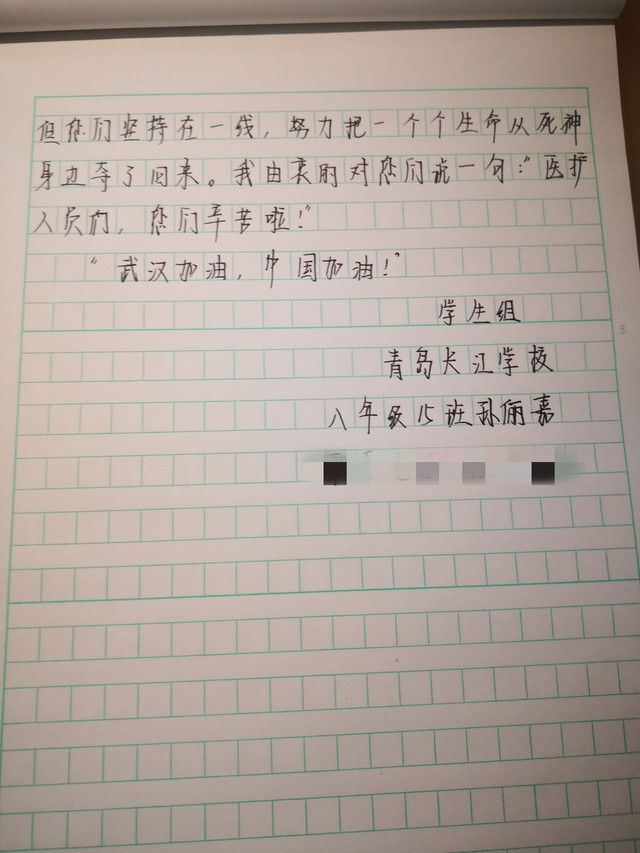 但您们坚持在一线，努力把一个个生命从死神
身边夺了回来。我由衷的对您们说一句：“医护
人员们，您们辛苦啦！”
“武汉加油，中国加油！”
学生组
青岛长江学校
八年级15班孙俪嘉